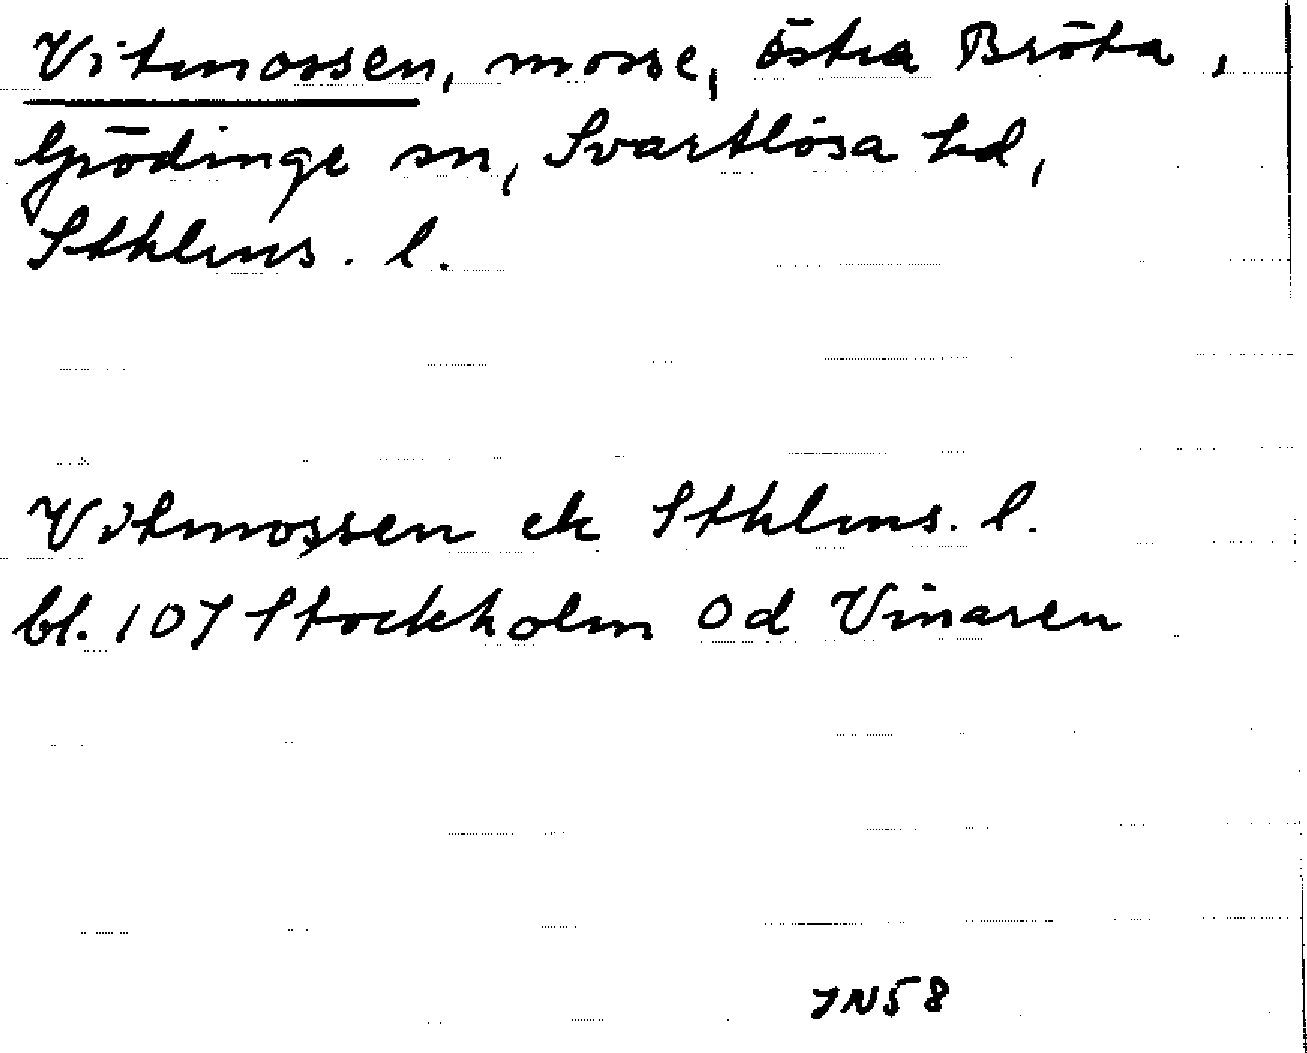 Vitmossen, mosse, östra Bröta,
Grödinge sn, Svartlösa hd,
Sthlms. l.
Vitmossen ek Sthlms. l.
bl. 107 Stockholm Od Vinaren
JN58